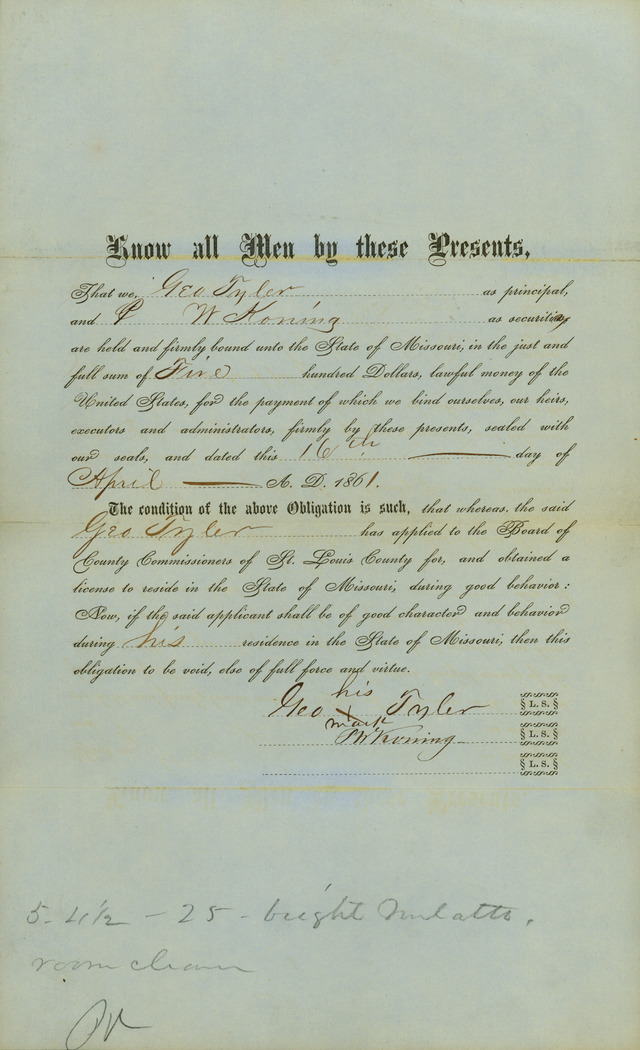 Know all Men by these Presents,
That we, Geo Tyler as principal,
and P W Koning as securities,
are held and firmly bound unto the State of Missouri, in the just and
full sum of Five hundred Dollars, lawful money of the
United States, for the payment of which we bind ourselves, our heirs,
executors and administrators, firmly by these presents, sealed with
our seals, and dated this 16th day of
April A. D. 1861.
The condition of the above Obligation is such, that whereas, the said
Geo Tyler has applied to the Board of
County Commissioners of St. Louis County for, and obtained a
license to reside in the State of Missouri, during good behavior:
Now, if the said applicant shall be of good character and behavior
during his residence in the State of Missouri, then this
obligation to be void, else of full force and virtue.
his
Geo X Tyler L. S.
mark
PW Koning L. S.
L. S.
5-4½ - 25 - bright Mulatto.
room cleaner